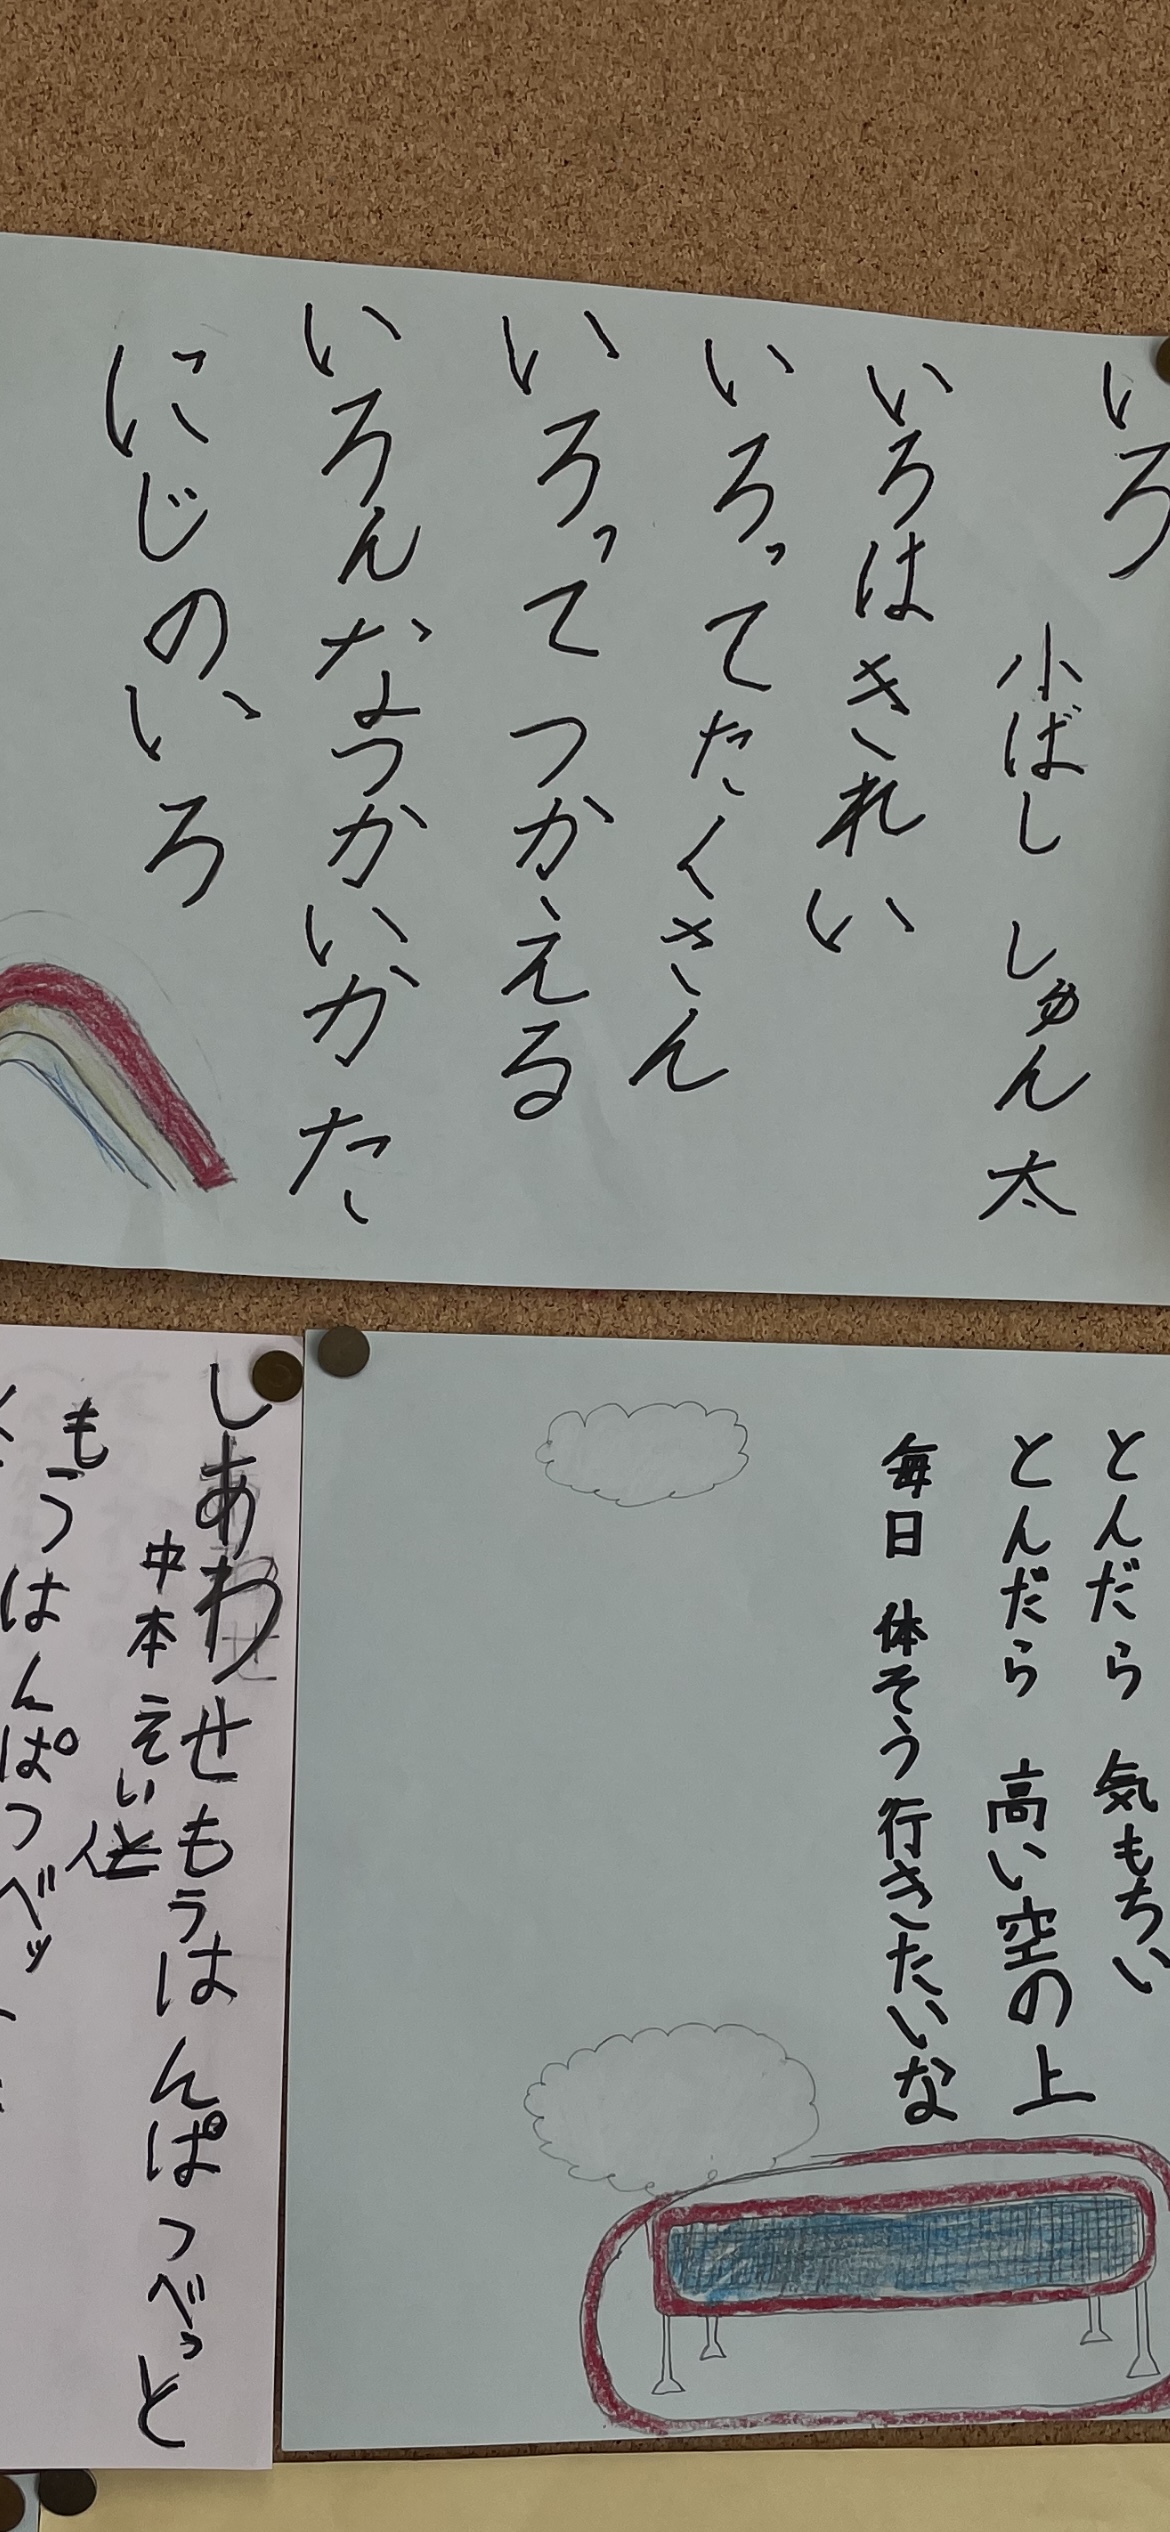 いろ
小ばし しゅん太
いろはきれい
いろってたくさん
いろってつかえる
いろんなつかいかた
にじのいろ
とんだら 気もちい
とんだら 高い空の上
毎日 体そう行きたいな
しあわせもうはんぱつべっと
中本えい人
もうはんぱつベッ